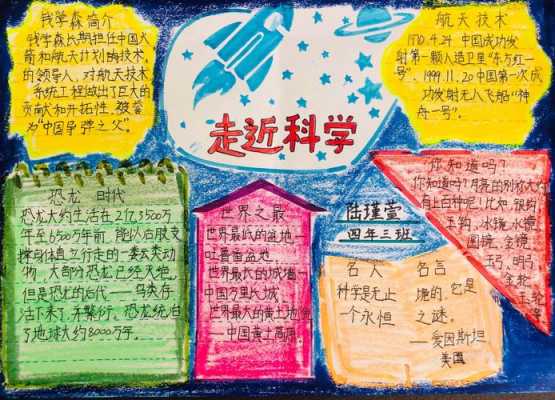 钱学森简介
钱学森长期担任中国火
箭和航天计划的技术
的领导人，对航天技术
系统工程做出了巨大的
贡献和开拓性，被誉
为“中国导弹之父”。
走近科学
航天技术
1970.4.24 中国成功发
射第一颗人造卫星“东方红一
号”，1999.11.20 中国第一次成
功发射无人飞船“神
舟一号”。
恐龙 时代
恐龙大约生活在2亿3500万
年至6500万年前，能以后肢支
撑身体直立行走的一类动
物，大部分恐龙已经灭绝，
但是恐龙的后代——鸟类存
活下来了，并繁衍。恐龙统治
了地球大约8000万年。
世界之最
世界最低的盆地—
吐鲁番盆地。
世界最长的城墙—
中国万里长城
世界最大的黄土地貌
—中国黄土高原。
陆瑾萱
四年三班
名人 名言
科学是无止
境的，它是
一个永恒
之谜。
—爱因斯坦
美国
你知道吗？
你知道吗？月亮的别称大约
有上百种呢！比如，银钩
玉钩，冰镜，水镜
圆镜，金镜
玉弓，明弓
金轮
玉轮
等